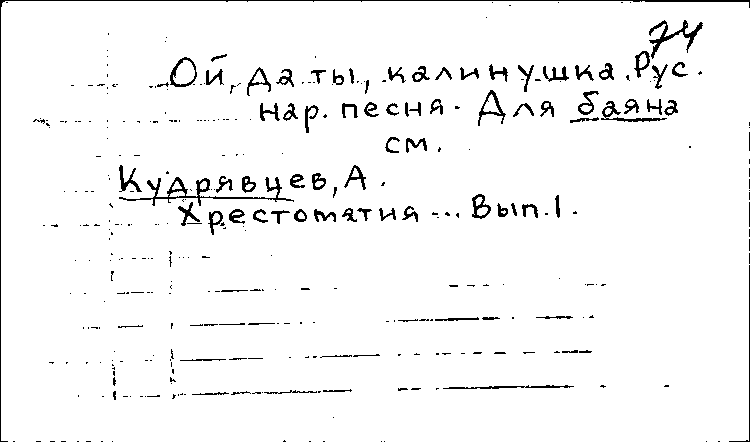 74
Ой, да ты, калинушка. Рус.
нар. песня. Для баяна
см.
Кудрявцев, А.
Хрестоматия... Вып. 1.